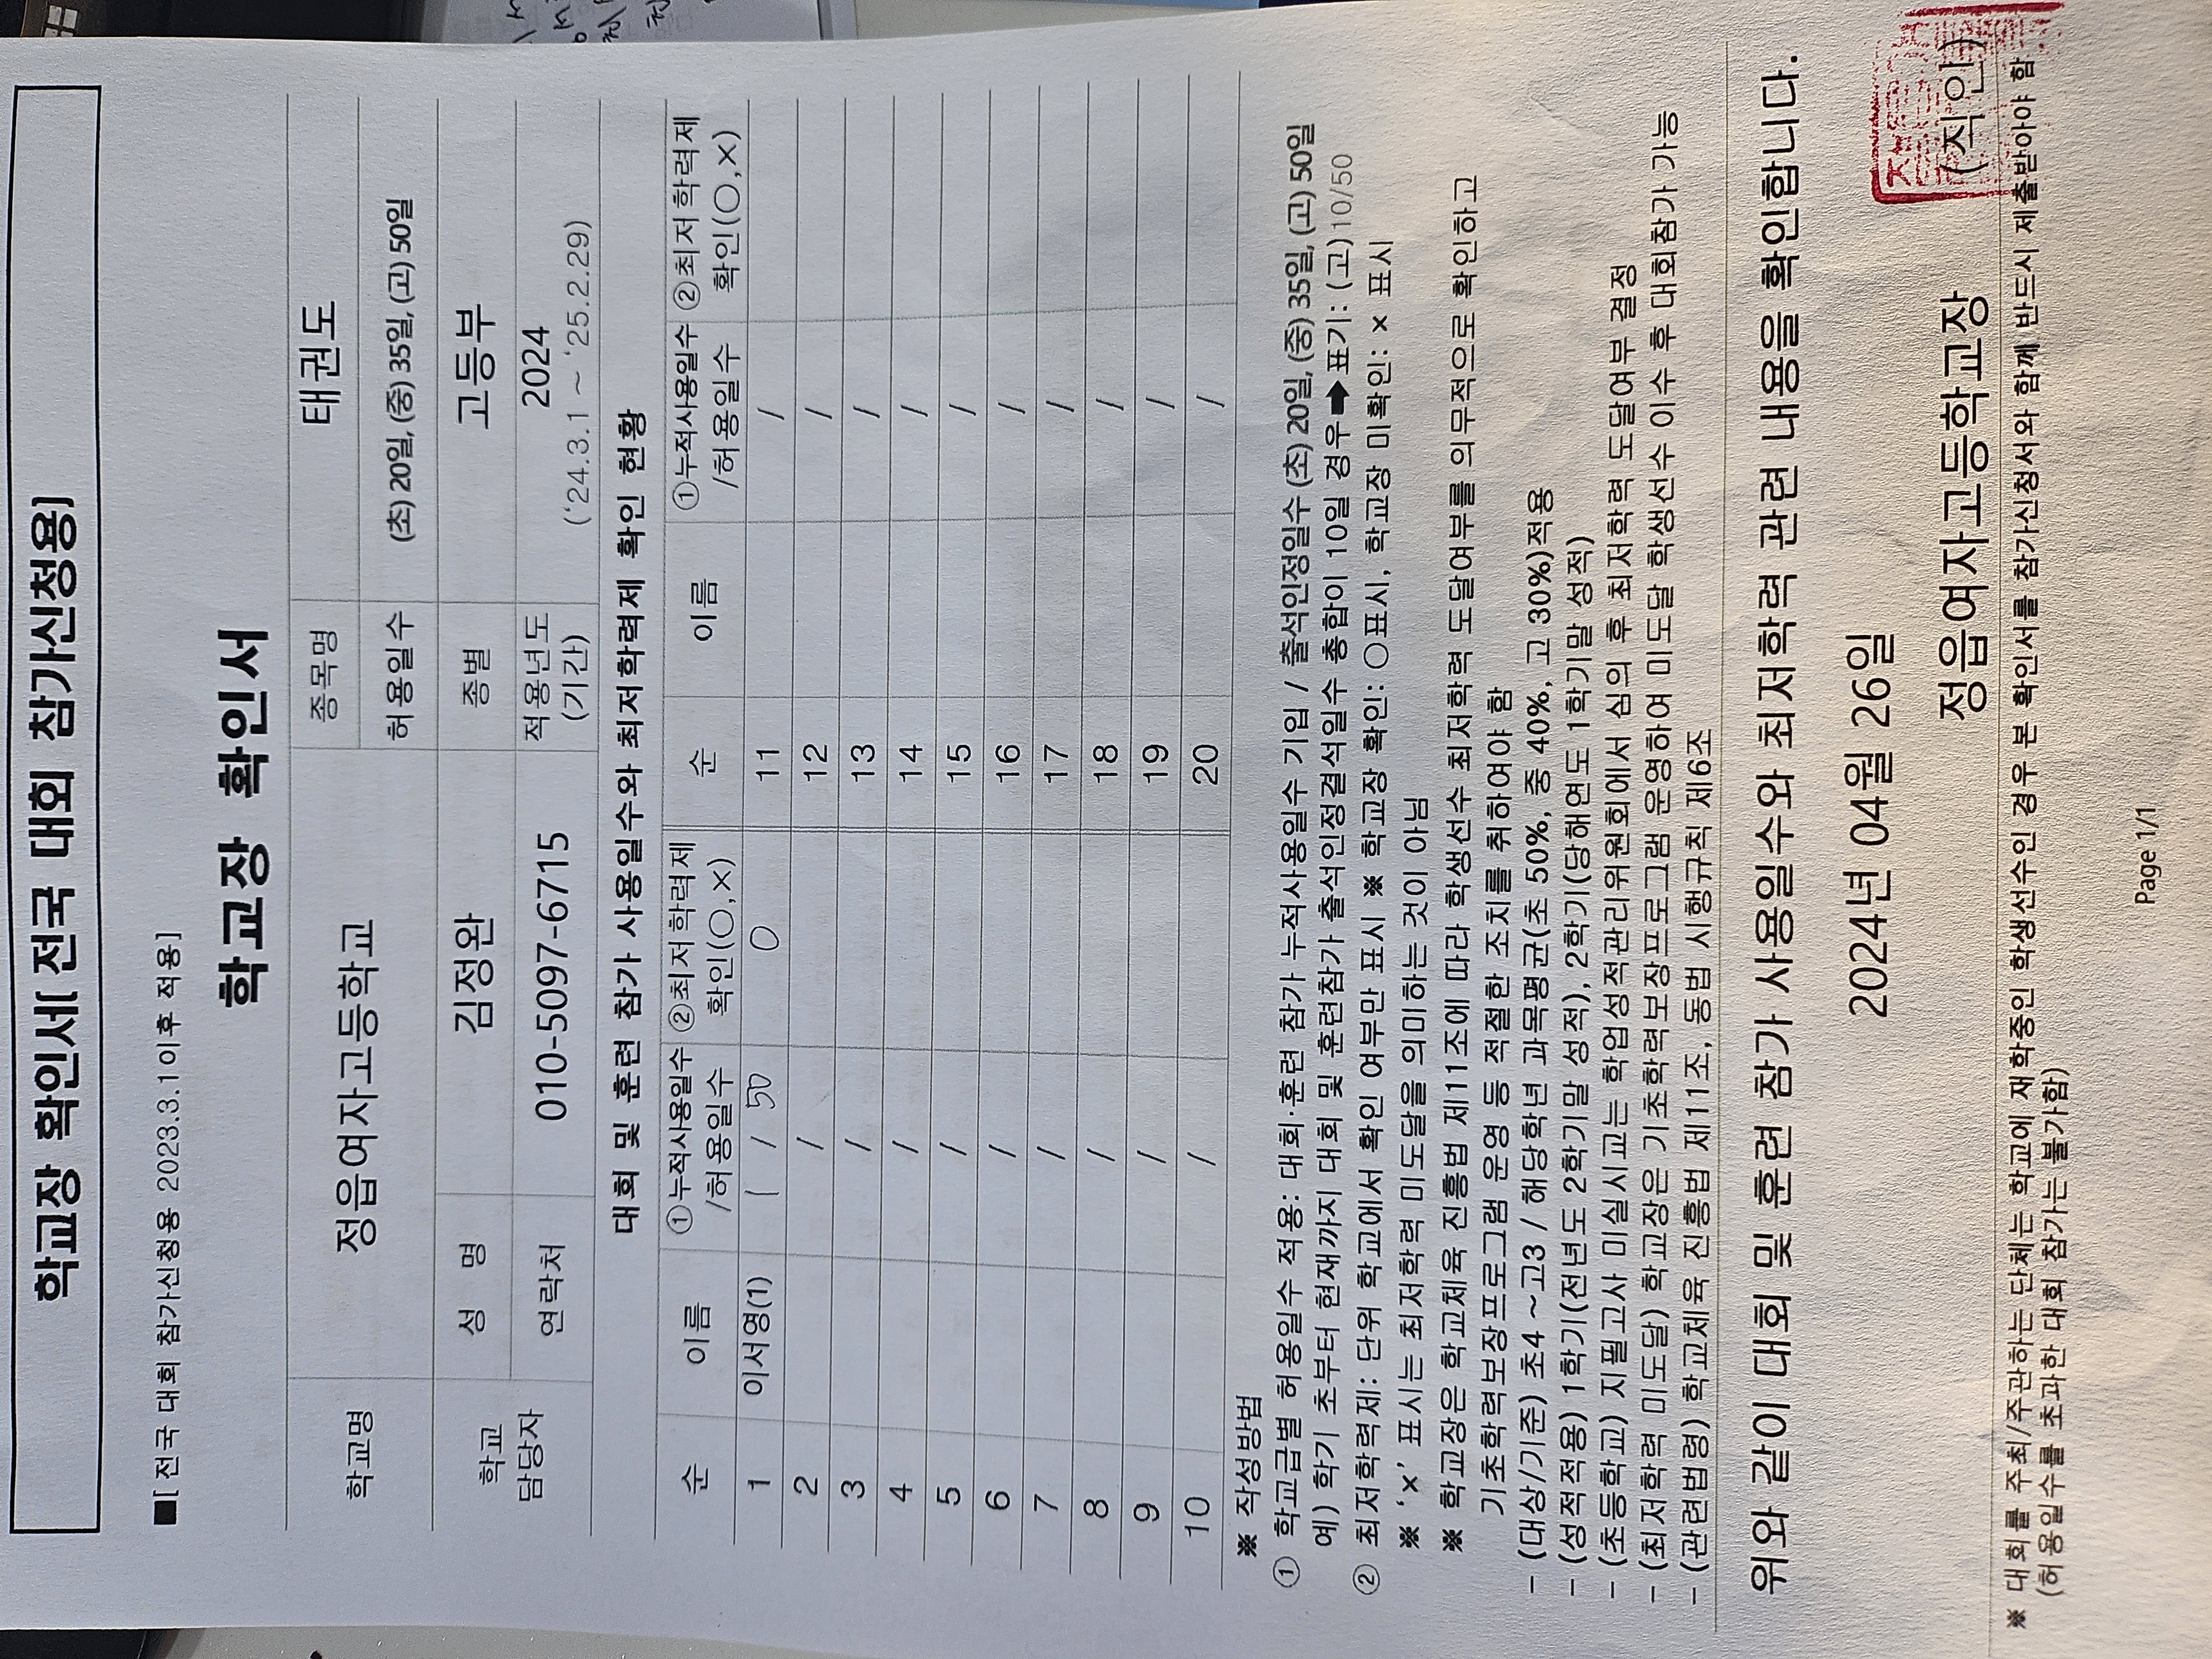 학교장 확인서[ 전국 대회 참가신청용]
■[ 전국 대회 참가신청용 2023.3.1이후 적용]
학교장 확인서
학교명 정읍여자고등학교 종목명 태권도
허용일수 (초) 20일, (중) 35일, (고) 50일
학교 담당자 성 명 김정완 종별 고등부
연락처 010-5097-6715 적용년도 (기간) 2024 ('24.3.1 ~ '25.2.29)
대회 및 훈련 참가 사용일수와 최저학력제 확인 현황
순 이름 ①누적사용일수 /허용일수 ②최저학력제 확인(○,×) 순 이름 ①누적사용일수 /허용일수 ②최저학력제 확인(○,×)
1 이서영(1) 1 / 50 O 11 /
2 / 12 /
3 / 13 /
4 / 14 /
5 / 15 /
6 / 16 /
7 / 17 /
8 / 18 /
9 / 19 /
10 / 20 /
※ 작성방법
① 학교급별 허용일수 적용: 대회·훈련 참가 누적사용일수 기입 / 출석인정일수 (초) 20일, (중) 35일, (고) 50일
예) 학기 초부터 현재까지 대회 및 훈련참가 출석인정결석일수 총합이 10일 경우 ➡ 표기: (고) 10/50
② 최저학력제: 단위 학교에서 확인 여부만 표시 ※ 학교장 확인: ○표시, 학교장 미확인: × 표시
※ '×' 표시는 최저학력 미도달을 의미하는 것이 아님
※ 학교장은 학교체육 진흥법 제11조에 따라 학생선수 최저학력 도달여부를 의무적으로 확인하고
기초학력보장프로그램 운영 등 적절한 조치를 취하여야 함
- (대상/기준) 초4 ~고3 / 해당학년 과목평균(초 50%, 중 40%, 고 30%)적용
- (성적적용) 1학기(전년도 2학기말 성적), 2학기(당해연도 1학기말 성적)
- (초등학교) 지필고사 미실시교는 학업성적관리위원회에서 심의 후 최저학력 도달여부 결정
- (최저학력 미도달) 학교장은 기초학력보장프로그램 운영하여 미도달 학생선수 이수 후 대회참가 가능
- (관련법령) 학교체육 진흥법 제11조, 동법 시행규칙 제6조
위와 같이 대회 및 훈련 참가 사용일수와 최저학력 관련 내용을 확인합니다.
2024년 04월 26일
정읍여자고등학교장 (직인)
※ 대회를 주최/주관하는 단체는 학교에 재학중인 학생선수인 경우 본 확인서를 참가신청서와 함께 반드시 제출받아야 함
(허용일수를 초과한 대회 참가는 불가함)
Page 1/1